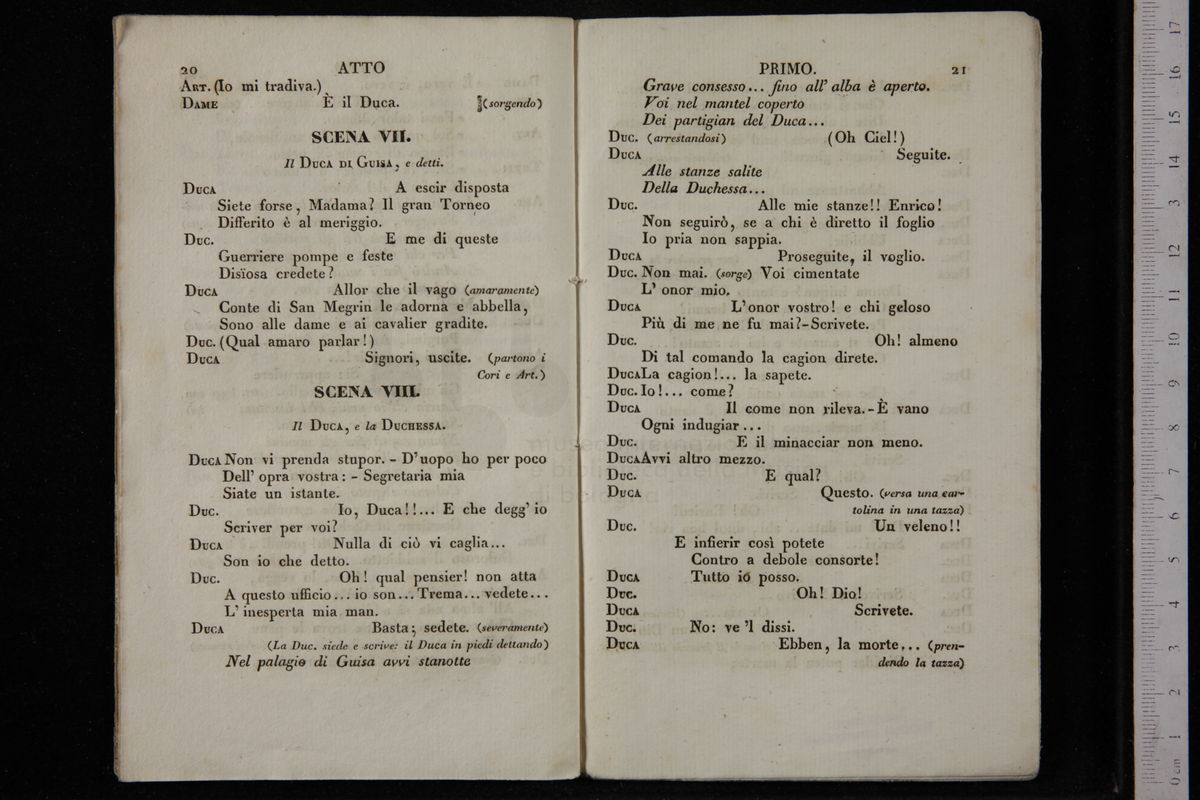 20 ATTO
Art. (Io mi tradiva.)
Dame È il Duca. (sorgendo)
SCENA VII.
Il Duca di Guisa, e detti.
Duca A escir disposta
Siete forse, Madama? Il gran Torneo
Differito è al meriggio.
Duc. E me di queste
Guerriere pompe e feste
Disïosa credete?
Duca Allor che il vago (amaramente)
Conte di San Megrin le adorna e abbella,
Sono alle dame e ai cavalier gradite.
Duc. (Qual amaro parlar!)
Duca Signori, uscite. (partono i
Cori e Art.)
SCENA VIII.
Il Duca, e la Duchessa.
Duca Non vi prenda stupor. - D'uopo ho per poco
Dell' opra vostra: - Segretaria mia
Siate un istante.
Duc. Io, Duca!!... E che degg' io
Scriver per voi?
Duca Nulla di ciò vi caglia...
Son io che detto.
Duc. Oh! qual pensier! non atta
A questo ufficio... io son... Trema... vedete...
L' inesperta mia man.
Duca Basta; sedete. (severamente)
(La Duc. siede e scrive: il Duca in piedi dettando)
Nel palagio di Guisa avvi stanotte
PRIMO. 21
Grave consesso... fino all' alba è aperto.
Voi nel mantel coperto
Dei partigian del Duca...
Duc. (arrestandosi) (Oh Ciel!)
Duca Seguite.
Alle stanze salite
Della Duchessa...
Duc. Alle mie stanze!! Enrico!
Non seguirò, se a chi è diretto il foglio
Io pria non sappia.
Duca Proseguite, il voglio.
Duc. Non mai. (sorge) Voi cimentate
L' onor mio.
Duca L'onor vostro! e chi geloso
Più di me ne fu mai?-Scrivete.
Duc. Oh! almeno
Di tal comando la cagion direte.
Duca La cagion!... la sapete.
Duc. Io!... come?
Duca Il come non rileva.-È vano
Ogni indugiar...
Duc. E il minacciar non meno.
Duca Avvi altro mezzo.
Duc. E qual?
Duca Questo. (versa una car-
tolina in una tazza)
Duc. Un veleno!!
E infierir così potete
Contro a debole consorte!
Duca Tutto io posso.
Duc. Oh! Dio!
Duca Scrivete.
Duc. No: ve 'l dissi.
Duca Ebben, la morte... (pren-
dendo la tazza)
0 cm 1 2 3 4 5 6 7 8 9 10 11 12 13 14 15 16 17